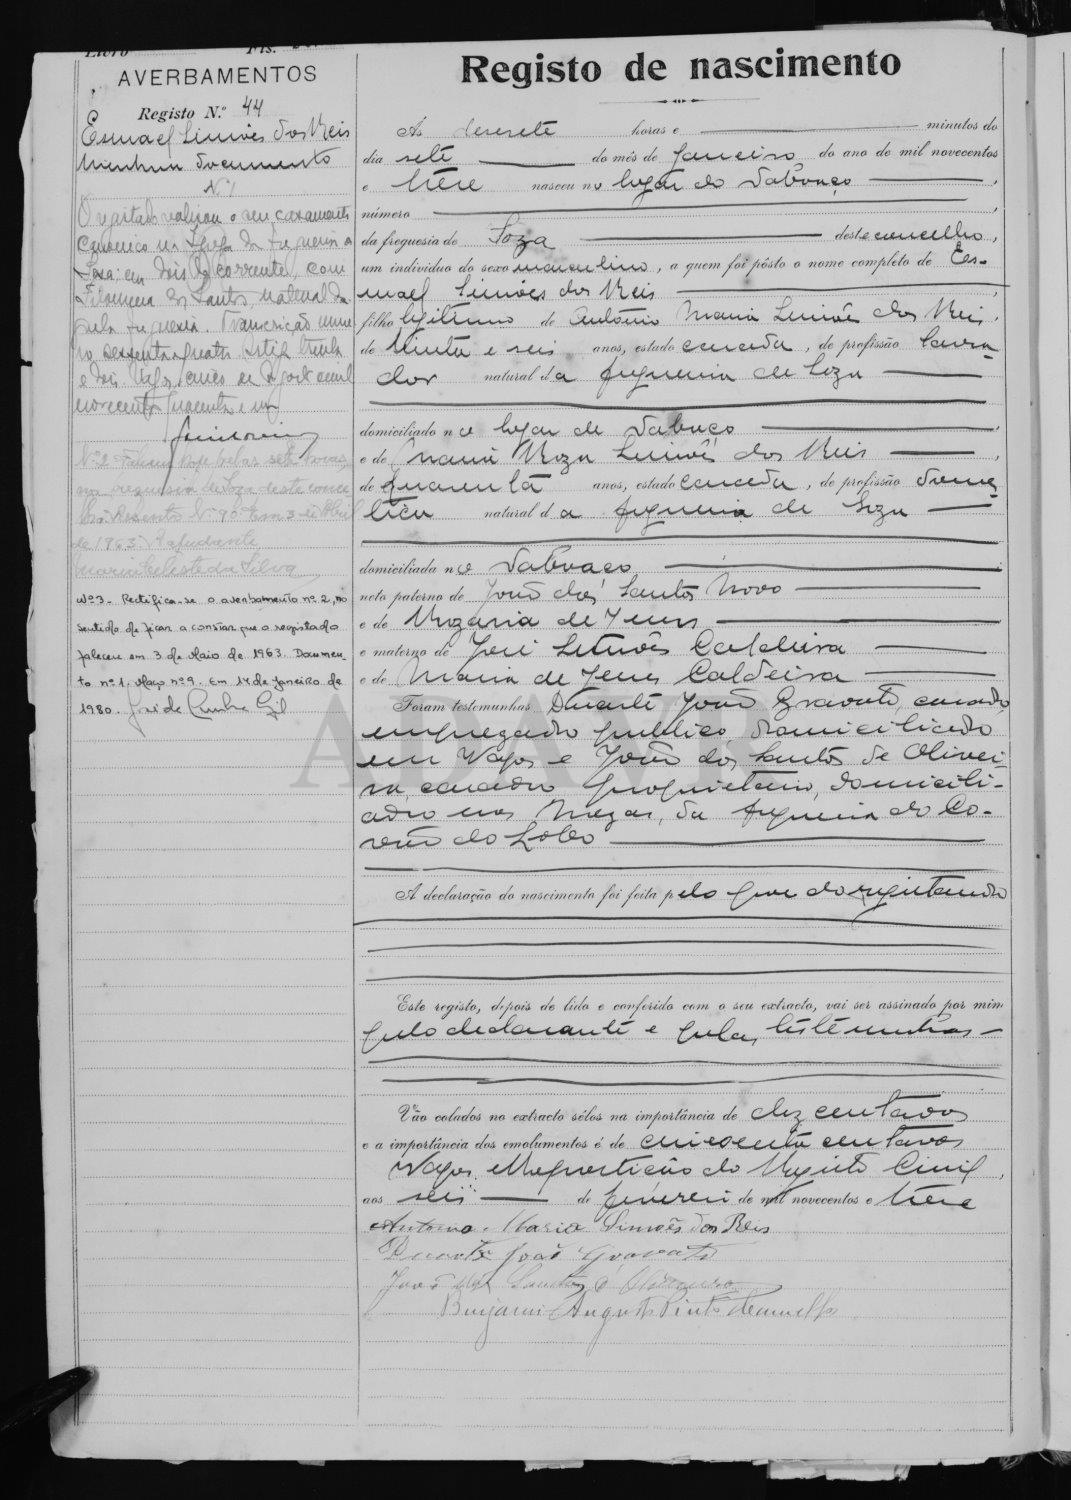 Livro Fls.
AVERBAMENTOS
Registo N.º 44
Esmael Simões dos Reis
Nenhum documento
Nº 1
O registado realizou o seu casamento
canonico na Igreja da freguesia de
Soza em dois do corrente, com
Filomena dos Santos, natural da
quela freguesia. Transcrição nume
ro sessenta e quatro
e dois. Vagos, cinco de Agosto de mil
novecentos quarenta e um
Nº 2 Faleceu hoje pelas sete horas
na freguesia de Soza deste conce
lho. Assento Nº 90. Em 3 de Abril
de 1963. A ajudante
Maria Celeste da Silva
Nº 3 - Rectifica-se o averbamento nº 2, no
sentido de ficar a constar que o registado
faleceu em 3 de Maio de 1963. Documen-
to nº 1, Maço nº 9. Em 14 de Janeiro de
1980. José da Cunha Gil
Registo de nascimento
Ás desesete horas e minutos do
dia sete do mês de Janeiro do ano de mil novecentos
e treze nasceu no logar do Sabouço
número
da freguesia de Soza deste concelho,
um individuo do sexo masculino, a quem foi pôsto o nome completo de Es-
mael Simões dos Reis
filho legitimo de António Maria Simões dos Reis,
de trinta e seis anos, estado casado, de profissão lavra-
dor natural da freguesia de Soza
domiciliado no logar de Sabouço
e de Maria Roza Simões dos Reis
de quarenta anos, estado casada, de profissão domes-
tica natural da freguesia de Soza
domiciliada no Sabouço
neto paterno de João dos Santos Novo
e de Rozaria de Jesus
e materno de José Simões Caldeira
e de Maria de Jesus Caldeira
Foram testemunhas Duarte João Gravato, casado,
empregado publico domiciliado
em Vagos e João dos Santos de Olivei-
ra, casado proprietario, domicili-
ado nas Mezas, da freguesia do Co-
vão do Lobo
A declaração do nascimento foi feita pelo pae do registando
Este registo, depois de lido e conferido com o seu extracto, vai ser assinado por mim
pelo declarante e pelas testemunhas
Vão colados no extracto sêlos na importância de dez centavos
e a importância dos emolumentos é de cincoenta centavos
Vagos, e Repartição do Registo Civil,
aos seis de fevereiro de mil novecentos e treze
Antonio Maria Simões dos Reis
Duarte João Gravato
João dos Santos d'Oliveira
Benjamim Augusto Pinto Ramalho
ADAVR